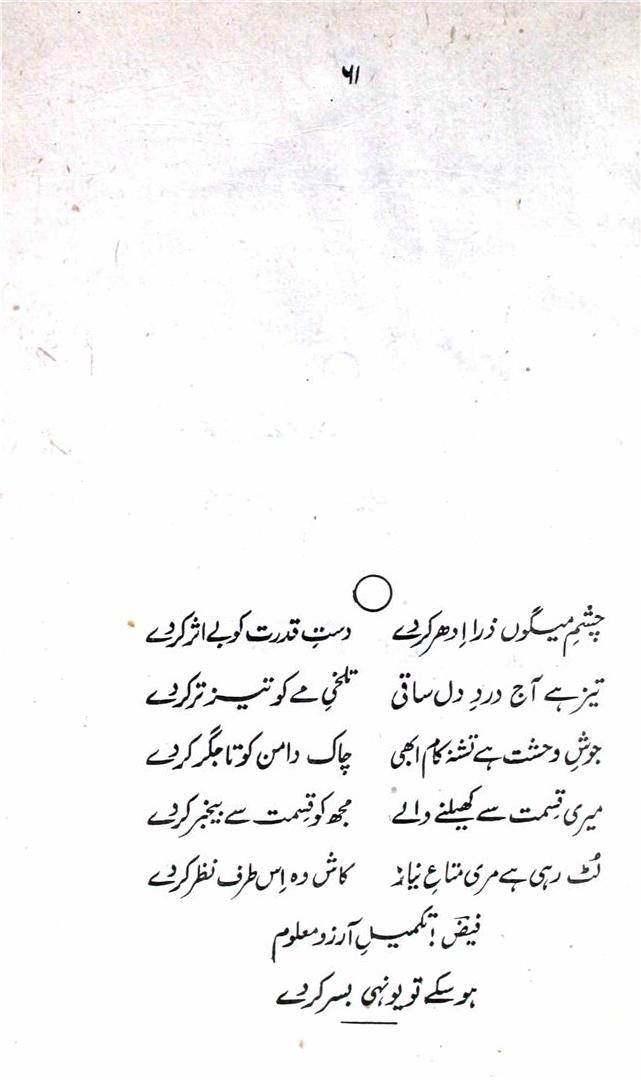 ۶۱
چشمِ میگوں ذرا اِدھر کردے دستِ قدرت کو بے اثر کردے
تیز ہے آج دردِ دل ساقی تلخیِ مے کو تیز تر کردے
جوشِ وحشت ہے تشنہ کام ابھی چاک دامن کو تا جگر کردے
میری قِسمت سے کھیلنے والے مجھ کو قِسمت سے بیخبر کردے
لُٹ رہی ہے مری متاعِ نیاز کاش وہ اِس طرف نظر کردے
فیضؔ! تکمیلِ آرزو معلوم
ہو سکے تو یونہی بسر کردے